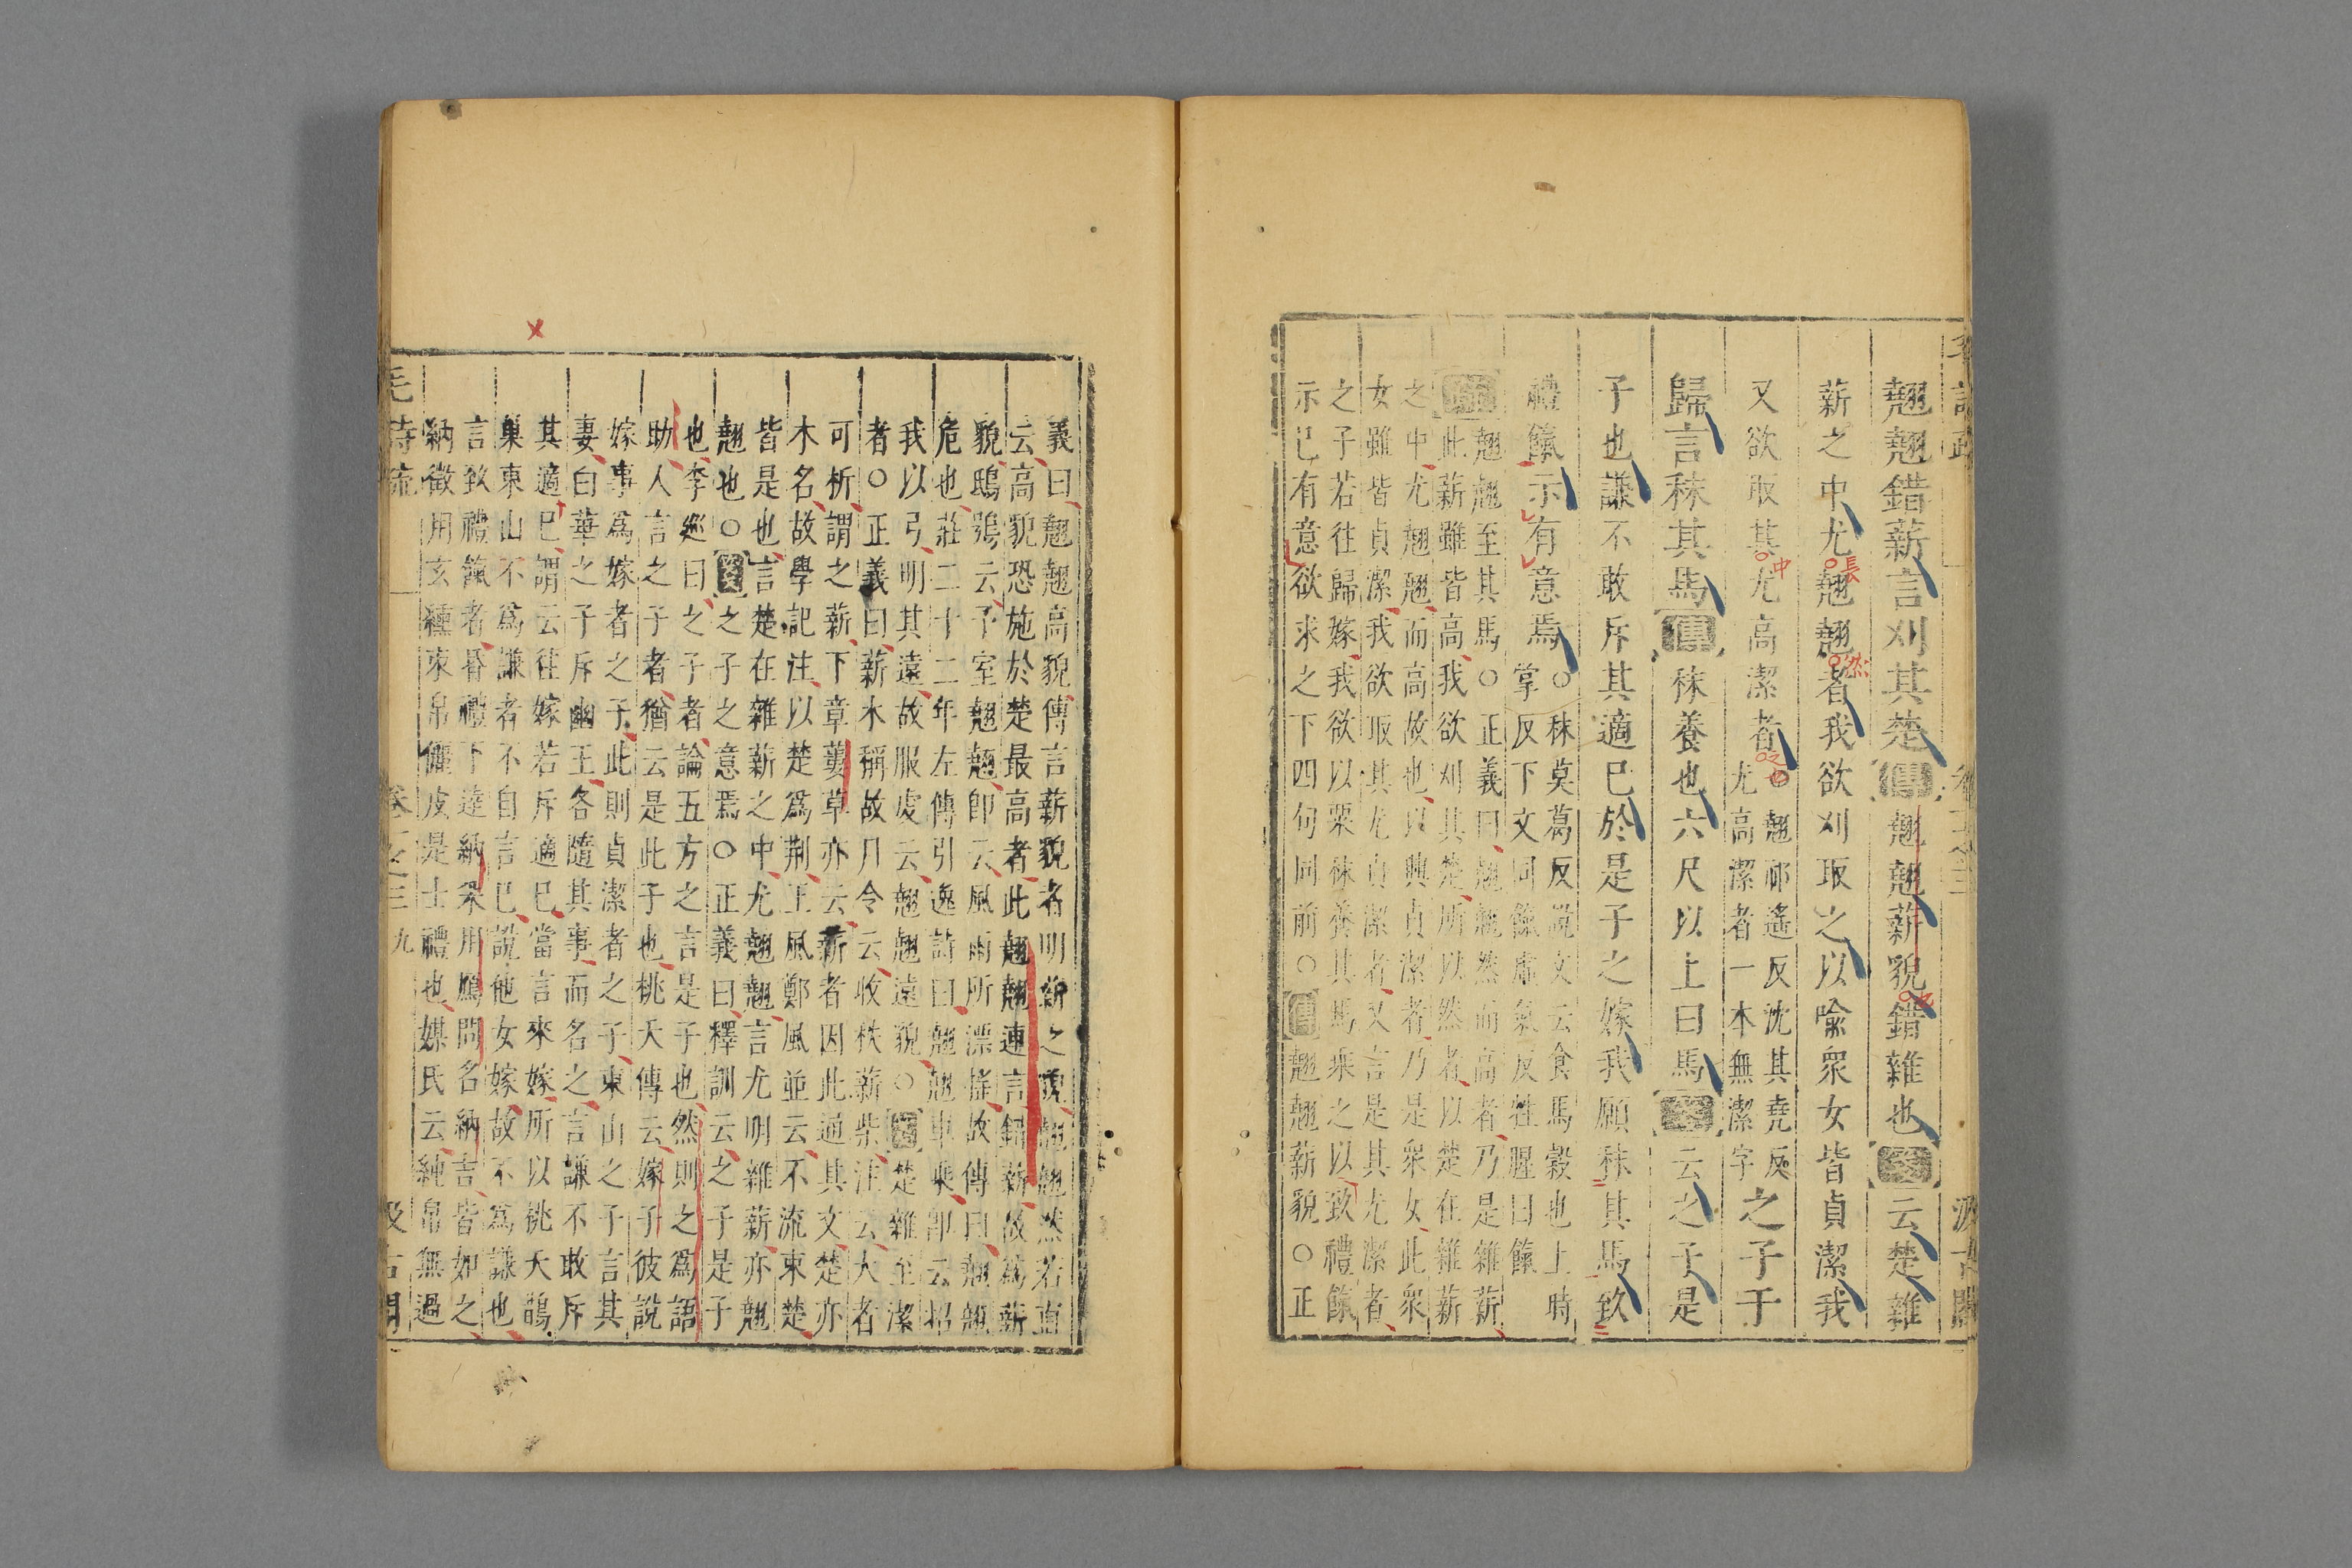 翹翹錯薪言刈其楚傳翹翹薪貌錯雜也箋云楚雜
薪之中尤翹翹者我欲刈取之以喻衆女皆貞潔我
又欲取其尤高潔者○翹祁遙反沈其堯反
尤高潔者一本無潔字
之子于
歸言秣其馬傳秣養也六尺以上曰馬箋云之子是
子也謙不敢斥其適已於是子之嫁我願秣其馬致
禮餼示有意焉○秣莫葛反說文云食馬穀也上時
掌反下文同餼虛氣反牲腥曰餼
疏翹翹至其馬○正義曰翹翹然而高者乃是雜薪
此薪雖皆高我欲刈其楚所以然者以楚在雜薪
之中尤翹翹而高故也以興貞潔者乃是衆女此衆
女雖皆貞潔我欲取其尤貞潔者又言是其尤潔者
之子若往歸嫁我欲以粟秣養其馬乘之以致禮餼
示已有意欲求之下四句同前○傳翹翹薪貌○正
義曰翹翹高貌傳言薪貌者明薪之貌翹翹然若直
云高貌恐施於楚最高者此翹翹連言錯薪故爲薪
貌鴟鴞云予室翹翹卽云風雨所漂搖故傳曰翹翹
危也莊二十二年左傳引逸詩曰翹翹車乘卽云招
我以弓明其遠故服虔云翹翹遠貌○箋楚雜至潔
者○正義曰薪木稱故月令云收秩薪柴注云大者
可析謂之薪下章蔞草亦云薪者因此通其文楚亦
木名故學記注以楚爲荆王風鄭風並云不流東楚
皆是也言楚在雜薪之中尤翹翹言尤明雜薪亦翹
翹也○箋之子之意焉○正義曰釋訓云之子是子
也李廵曰之子者論五方之言是子也然則之爲語
助人言之子者猶云是此子也桃夭傳云嫁子彼說
嫁事爲嫁者之子此則貞潔者之子東山之子言其
妻白華之子斥幽王各隨其事而名之言謙不敢斥
其適已謂云往嫁若斥適已當言來嫁所以桃夭鵲
巢東山不爲謙者不自言已說他女嫁故不爲謙也
言致禮餼者昏禮下達納采用鴈問名納吉皆如之
納徵用玄纁束帛儷皮是士禮也媒氏云純帛無過
卷一之三 九